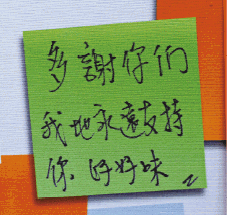 多謝你们
我地永遠支持
你 好好味